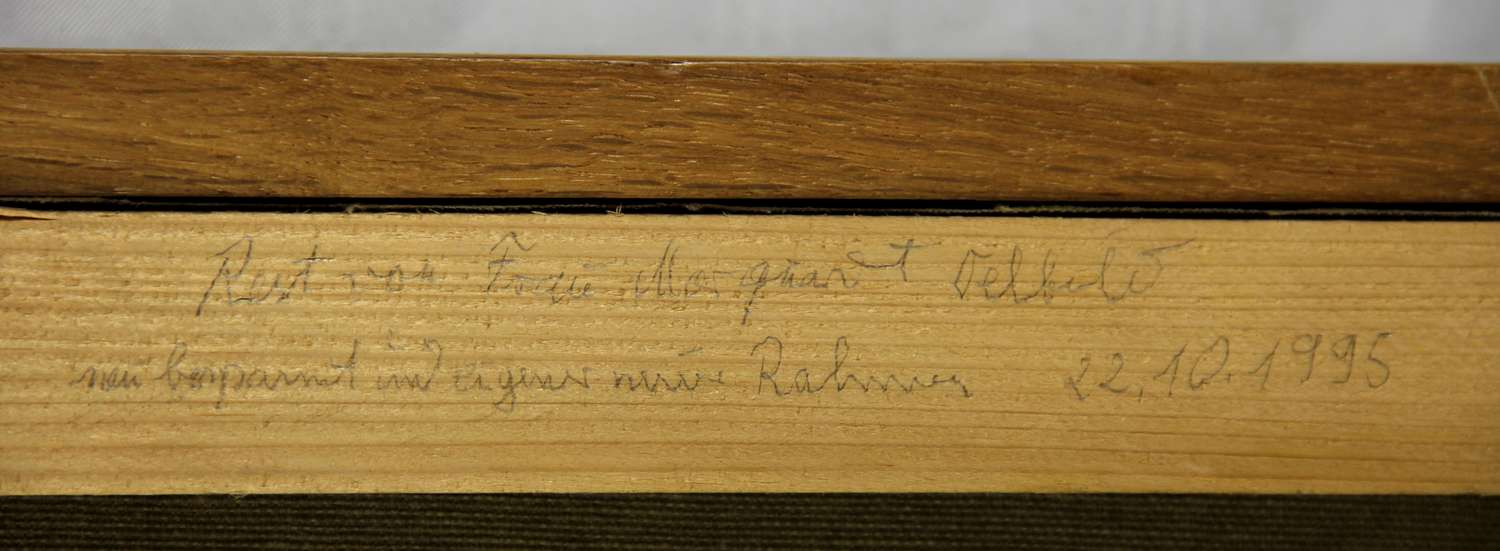 Rest von Frau Marquardt Oelbild
neu bespannt und eigener neuer Rahmen 22.10.1995